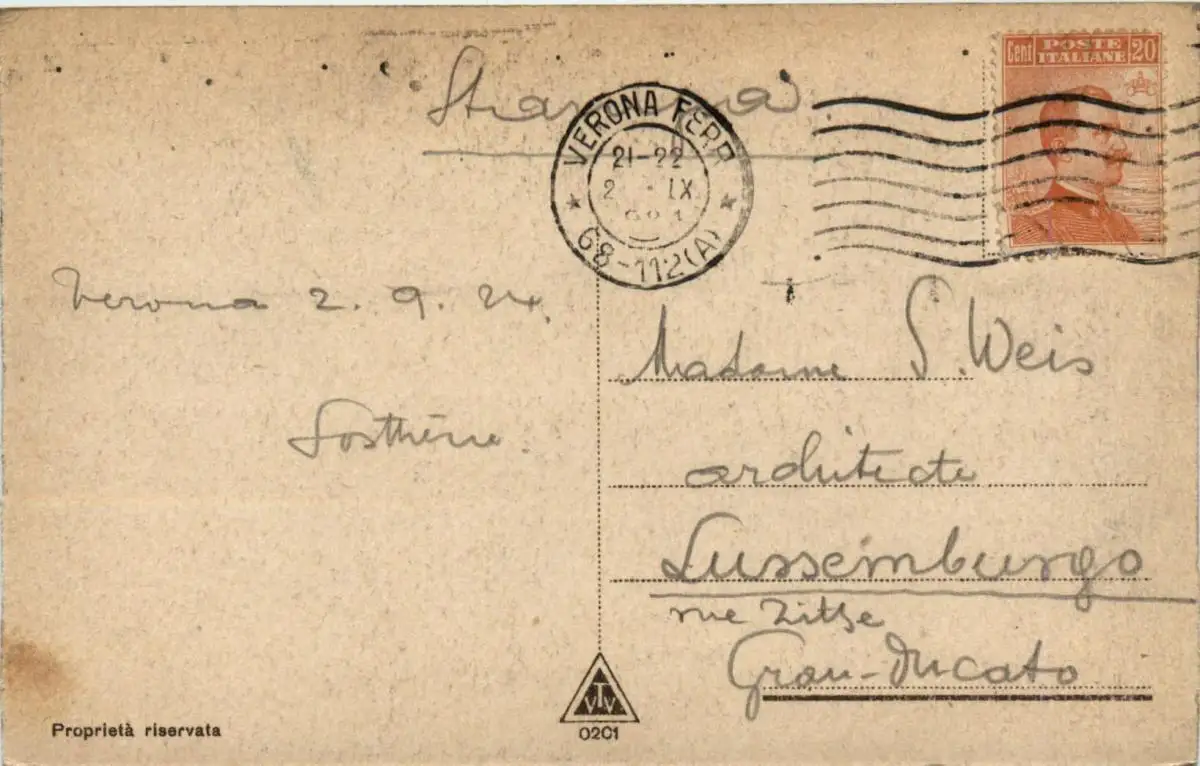 Cent POSTE ITALIANE 20
VERONA FERR
21-22
2 IX
68-112(A)
Verona 2. 9. 24.
Sosthène
Madame S. Weis
architecte
Lussemburgo
rue Zithe
Gran-Ducato
TVV
0201
Proprietà riservata